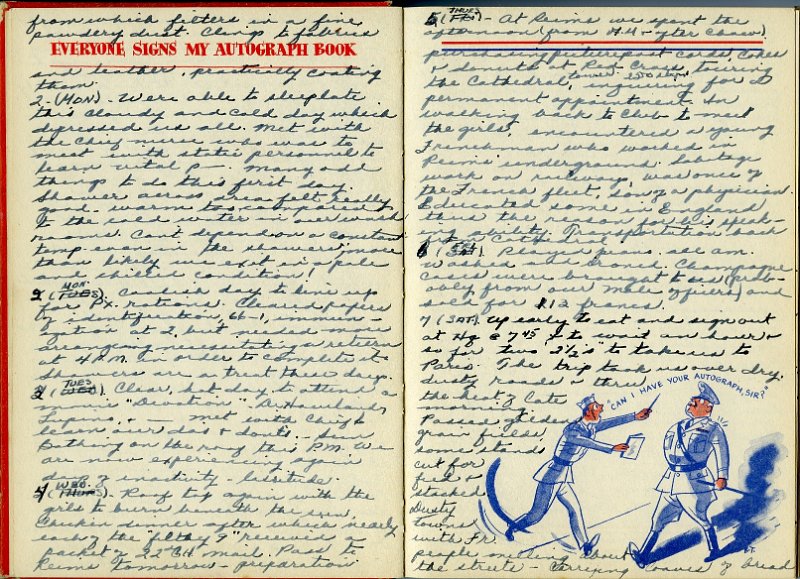 from which filters in a fine
powdery dust. Clings to fabrics
EVERYONE SIGNS MY AUTOGRAPH BOOK
and leather, practically coating
them.
2 - (MON) - Were able to sleep late
this cloudy and cold day which
depressed us all. Met with
the Chief nurse who was to
meet with static personnel to
learn vital Many odd
things to do this first day.
Shower across area felt really
good, warm too in comparison
to the cold water in our wash
rooms. Can't depend on a constant
temp even in the showers, more
than likely we exit in a pale
and chilled condition!
2 (MON - TUES). Coolish day to line up
for Px rations. Cleared papers
of identification, 66-1, immuni-
zation at 2, but needed more
arranging necessitating a return
at 4 P.M. in order to complete it.
Showers are a treat these days.
3 (TUES - WED). Clear, hot day to attend a
movie "Devotion" - D. Havilland,
Lupino, + met with Chief to
learn our do's + dont's. Sun
bathing on the roof this P.M. We
are now experiencing again
days of inactivity - lassitude.
4 WED. (THURS). Roof top again with the
girls to burn beneath the sun.
Chicken dinner after which nearly
each of the "filthy 9" received a
packet of 22nd GH mail. Pass to
Reims tomorrow - preparation
5 THURS (FRI) - At Reims we spent the
afternoon (from A.H. after chow)
purchasing picture post cards, cokes
+ donuts at Red Cross, touring
the Cathedral, tower - 250 steps, inquiring for a
permanent appointment. In
walking back to Club to meet
the girls, encountered a young
Frenchman who worked in
Reims underground. Sabotage
work on railways, was once of
the French fleet, son of a physician.
Educated some in England
thus the reason for his speak-
ing ability. Transportation back
from Cathedral.
6 (FRI - SAT). Played all am.
Washed and ironed. Champagne
cases were brought to us (prob-
ably from our male officers) and
sold for 112 francs.
7 (SAT). Up early to eat and sign out
at Hq @ 7 45 + to wait an hour or
so for two 2 1/2's to take us to
Paris. The trip took us over dry,
dusty roads + thru
the heat of late
morning.
Passed golden
grain fields,
some stands
cut for
feed +
stacked.
Dusty
towns
with Fr.
people milling about
the streets - carrying loaves of bread
"CAN I HAVE YOUR AUTOGRAPH, SIR?"